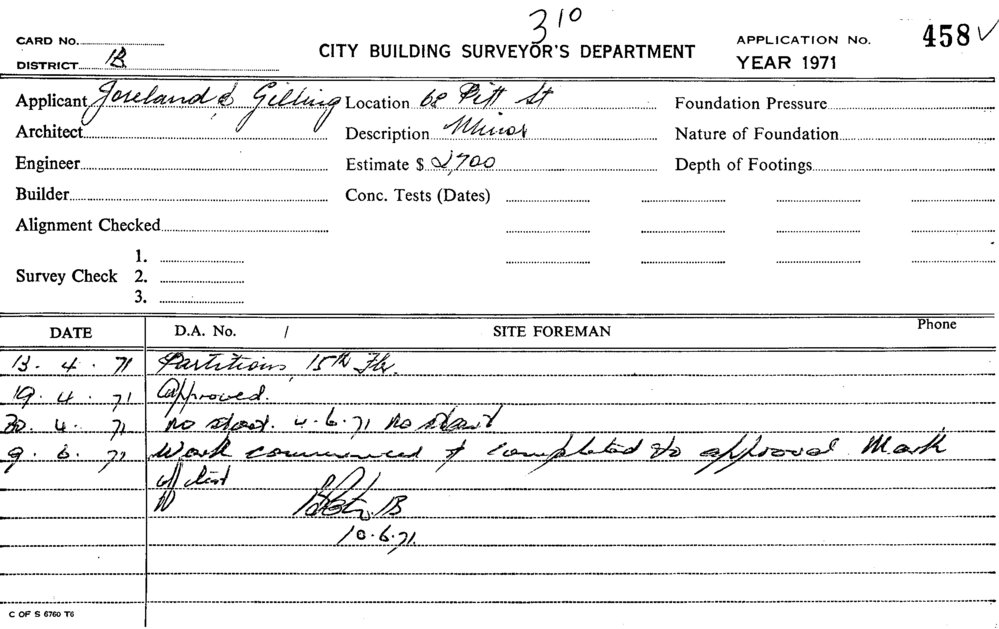 310
CARD No.
CITY BUILDING SURVEYOR'S DEPARTMENT
APPLICATION No. 458 ✓
DISTRICT 1B
YEAR 1971
Applicant Joreland & Gilling Location 68 Pitt St Foundation Pressure
Architect Description Minor Nature of Foundation
Engineer Estimate $ 2,700 Depth of Footings
Builder Conc. Tests (Dates)
Alignment Checked
1.
Survey Check 2.
3.
DATE D.A. No. / SITE FOREMAN Phone
13. 4. 71 Partitions, 15th Flr.
19. 4. 71 Approved.
30. 4. 71 no start. 4.6.71 No start
9. 6. 71 Work commenced & completed to approval Mark
off list
B
10.6.71
C OF S 6760 T6